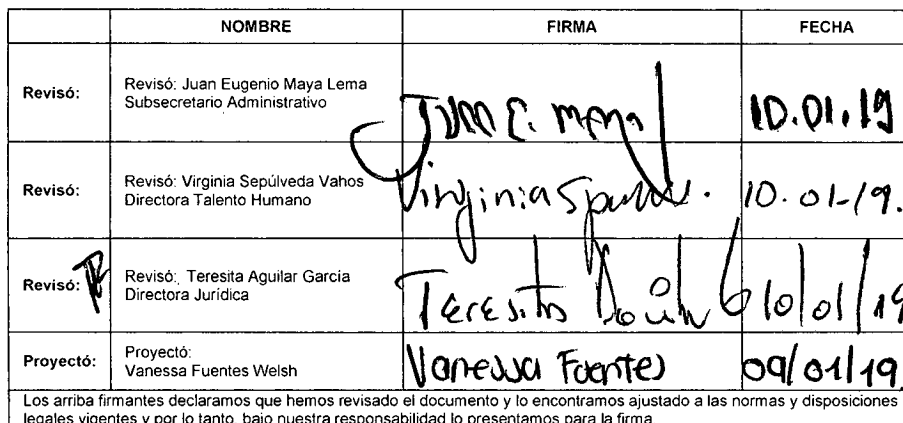 NOMBRE FIRMA FECHA
Revisó: Revisó: Juan Eugenio Maya Lema
Subsecretario Administrativo
Juan E. Maya 10.01.19
Revisó: Revisó: Virginia Sepúlveda Vahos
Directora Talento Humano
Virginia 10.01-19.
Revisó: Revisó: Teresita Aguilar García
Directora Jurídica
Teresita 10/01/19
Proyectó: Proyectó:
Vanessa Fuentes Welsh
Vanessa Fuentes 09/01/19
Los arriba firmantes declaramos que hemos revisado el documento y lo encontramos ajustado a las normas y disposiciones
legales vigentes y por lo tanto, bajo nuestra responsabilidad lo presentamos para la firma